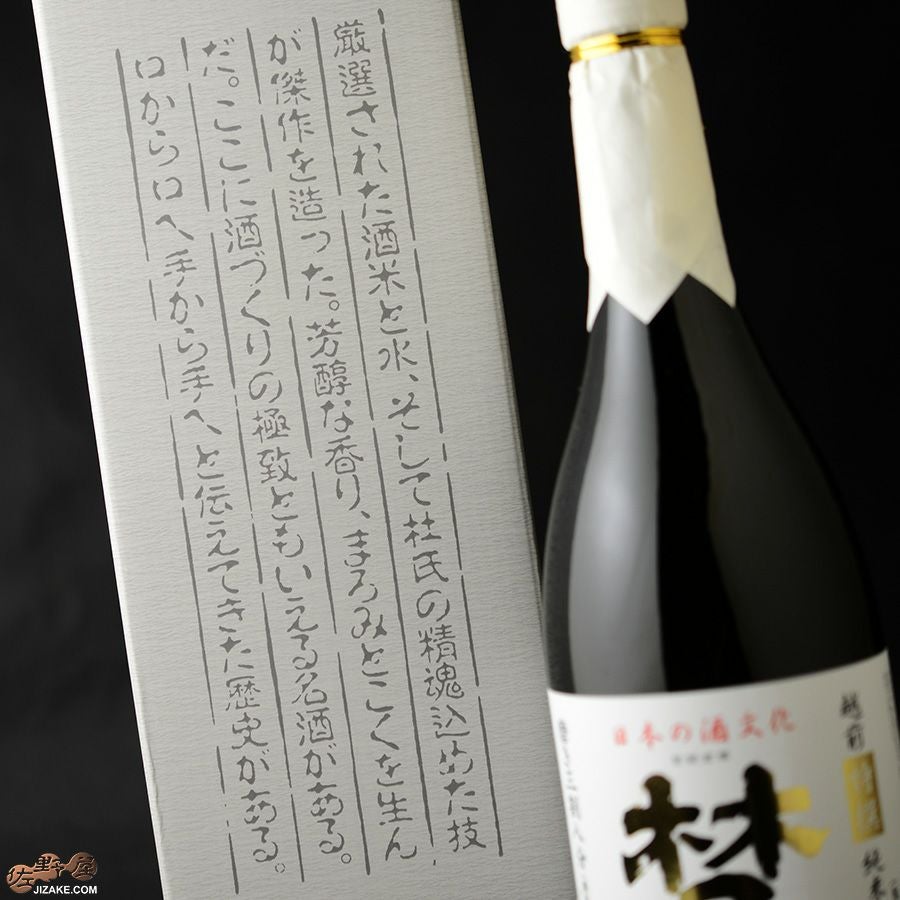 厳選された酒米と水、そして杜氏の精魂込めた技
が傑作を造った。芳醇な香り、まろみとこくを生ん
だ。ここに酒づくりの極致ともいえる名酒がある。
口から口へ手から手へと伝えてきた歴史がある。
越前
純米
日本の酒文化
佐野屋
JIZAKE.COM